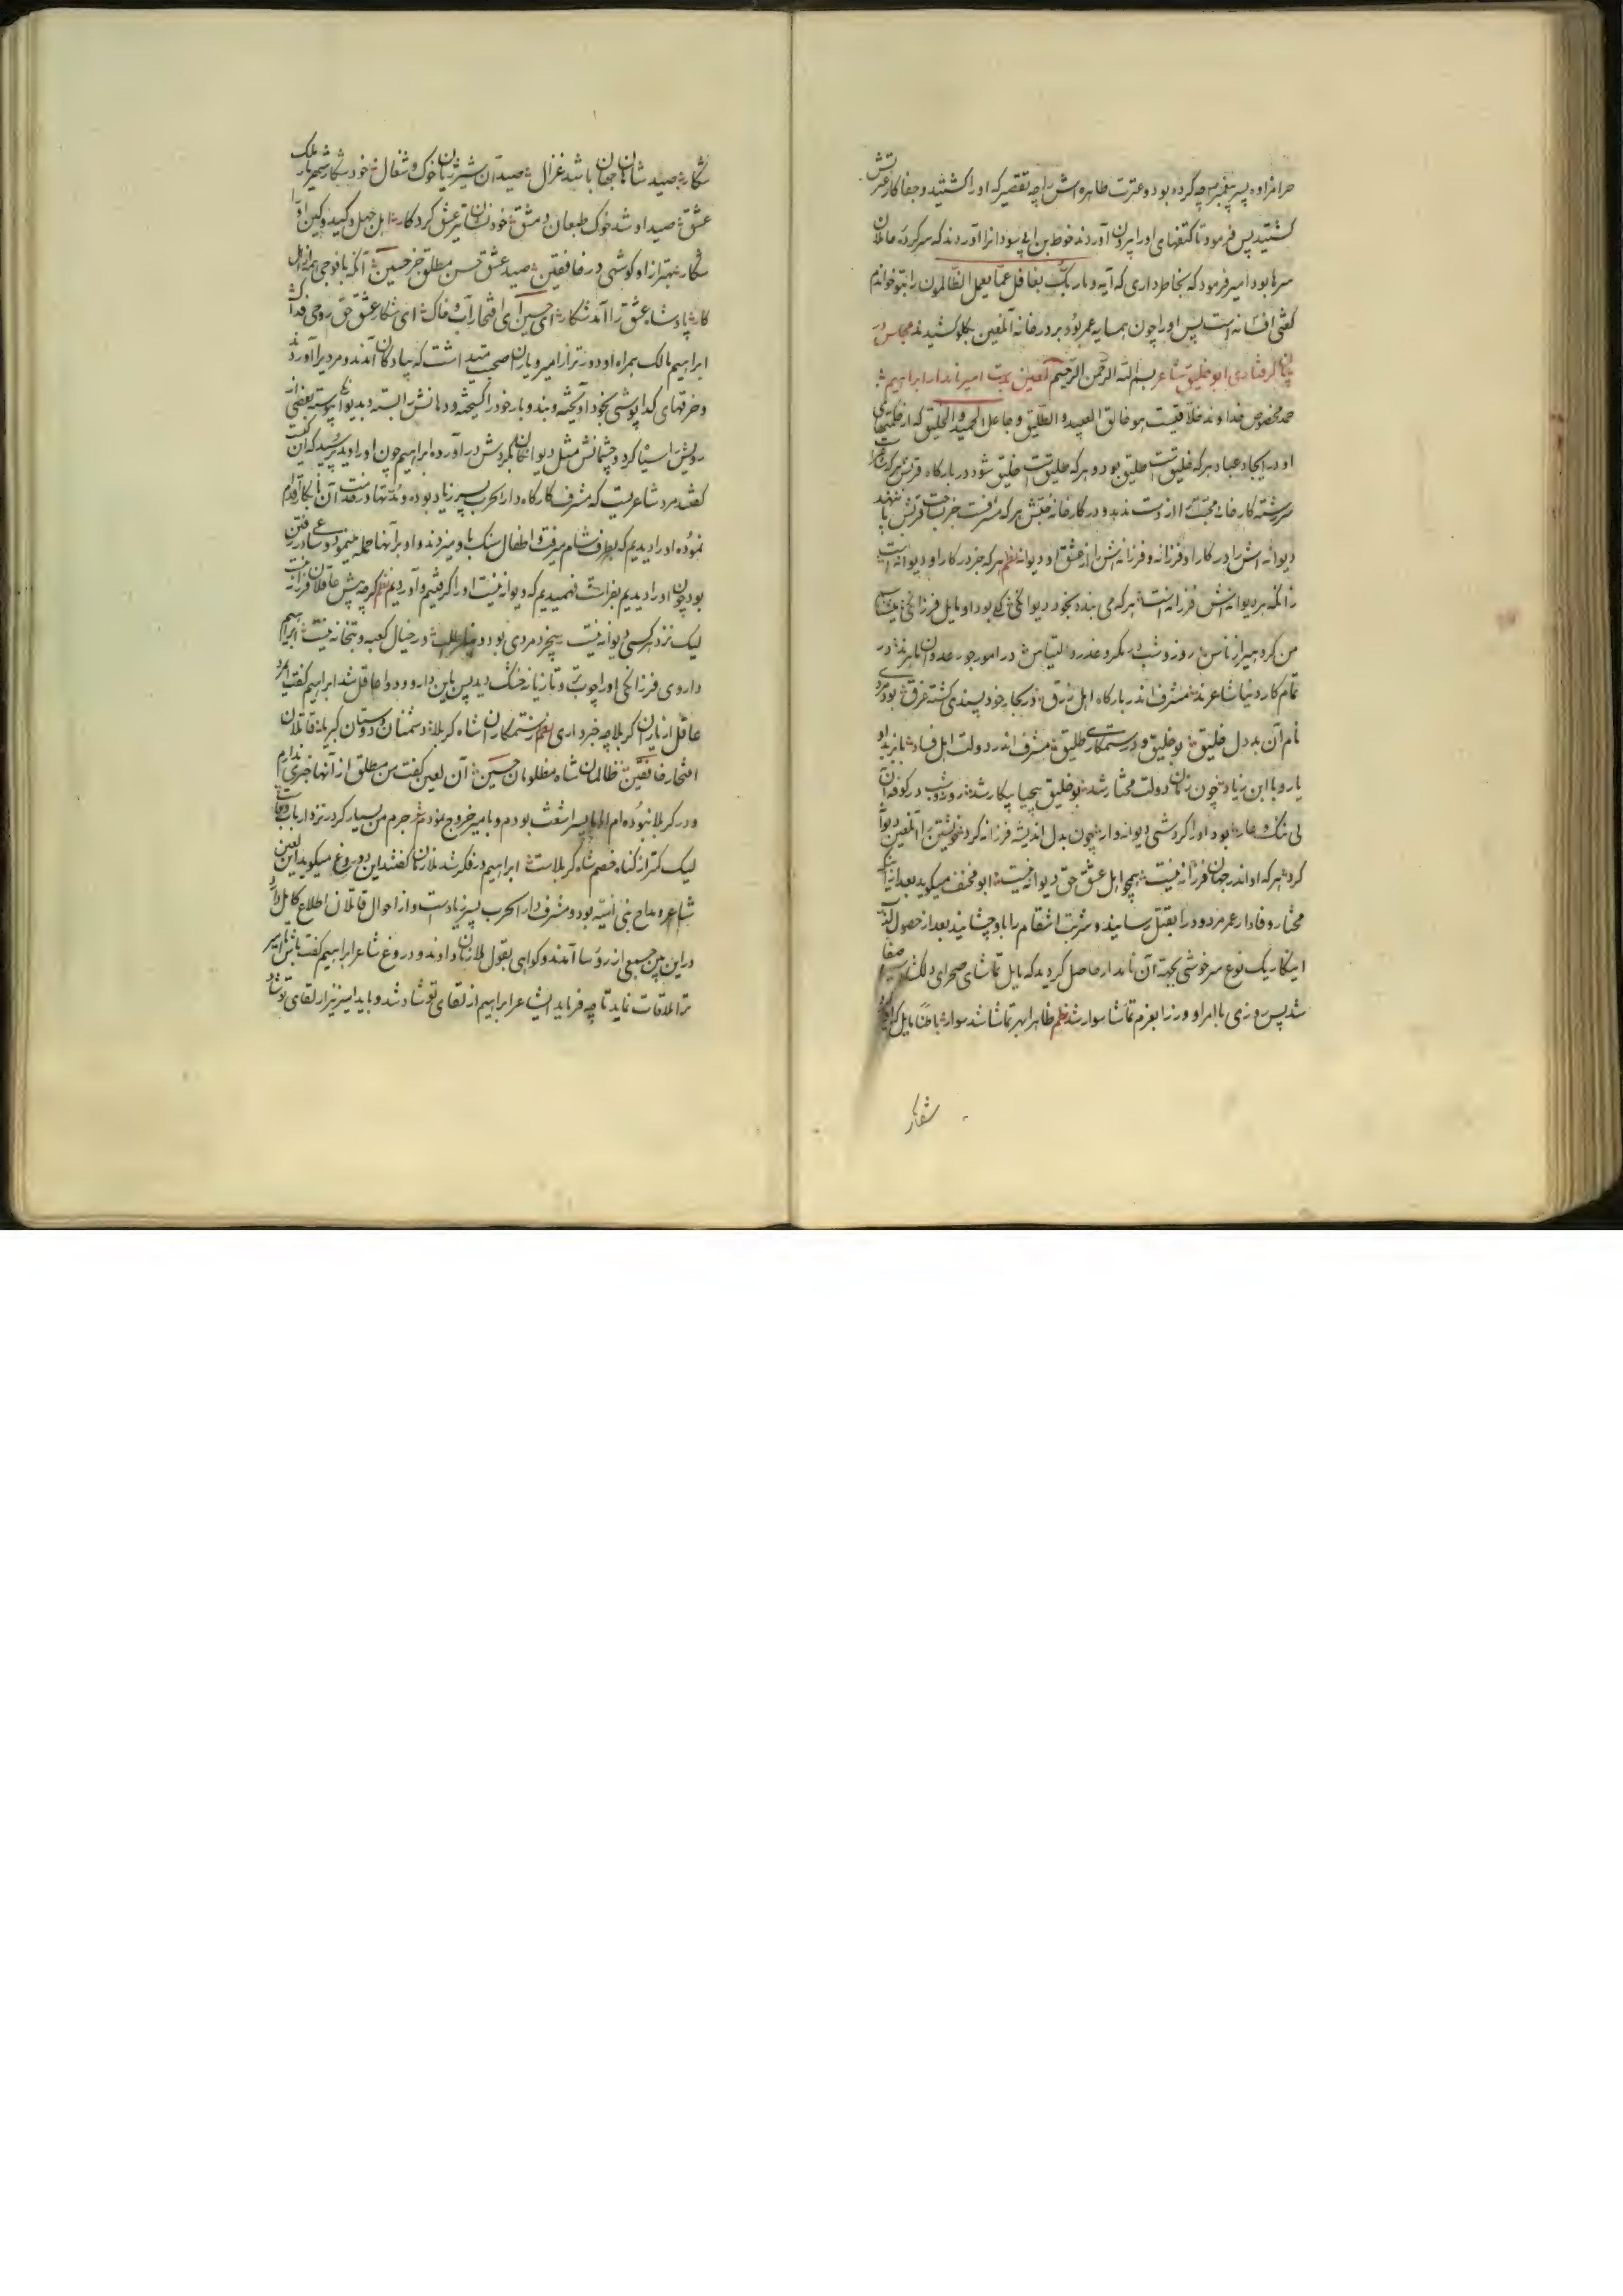 حرامزاوه پسر پیغمبر چه کرده بود و عترت طاهره اش را چه تقصیر که او را کشتید و جفا کار عترتش
کشتید پس فرمود تا کتفهای او را بیرون آوردند خوط بن ابی سودا نرا آوردند که سرکرده حاملان
سرها بود امیر فرمود که بخاطر داری که آیه و ما ربک بغافل عما یعمل الظالمون را بتو خواندم
گفتی افسانه است پس او را چون همسایه عمر بود بر در خانه آنلعین بکلو کشیدند مجلس در
بیان گرفتاری ابو خلیق شاعر بسم الله الرحمن الرحیم آنلعین بدست امیر نامدار ابراهیم
حمد مخصوص خداوند خلاقیست هو خالق العبید و الطلیق و جاعل الحمید و الخلیق که از خلقتهای
او در ایجاد عباد هر که خلیق است طلیق بود و هر که طلیق است خلیق شود در بارگاه قربش هر که
سررشته کارخانه محبت را از دست ندهد و در کارخانه محبتش هر که مشرفست
دیوانه اش را در کار او فرزانه و فرزانه اش را از عشق او دیوانه نظم هر که جز در کار او دیوانه است
زانکه هر دیوانه اش فرزانه است هر که می بنده بخود دیوانگی کی بود او مایل فرزانگی
من کروهی از ناس روز و شب در مکر و غدر و التباس در امور جور عدوان ماهرند در
تمام کار دنیا شاعرند مشرف اندر بارگاه اهل زرق در بحار خود پسندی کشته غرق بود مردی
نام آن بد دل خلیق بو خلیق و در ستمکاری طلیق مشرف اندر دولت اهل فساد با یزید او
یار و با ابن زیاد چون زمان دولت مختار شد بو خلیق بیحیا بیکار شد روز و شب در کوفه آن
بی ننک و عار بود او را کردشی دیوانه وار چون بدل اندیشه فرزانه کرد خویشتن را آنلعین دیوانه
کرد هر که او اندر جهان فرزانه نیست همچو اهل عشق حق دیوانه نیست ابو مخنف میکوید بعد از آنکه
مختار وفادار عمر مردود را بقتل رسانید و شربت انتقام را باو چشانید بعد از حصول
اینکار یک نوع سرخوشی بجهت آن نامدار حاصل کردید که مایل تماشای صحرای دلکشا
شد پس روزی با امرا و وزرا بعزم تماشا سوار شد نظم ظاهرا بهر تماشا شد سوار باطنا مایل
شکار
شکار صید شاهان جهان باشد غزال صیدآن شیر ژیان خوک و شغال خود شکار شهریار ملک
عشق صید او شد خوک طبعان دمشق خود نشان تیر عشق کردکار اهل جهل و کید و کین او را
شکار بهتر از او کوشی در خافقین صید عشق حسن مطلق جز حسین آنکه با فوجی همه از اهل
کار پادشاه عشق را آمد شکار ای حسین ای افتخار آب و خاک ای شکار عشق حق روحی فداک
ابراهیم مالک همراه او دورتر از امیر و یاران صحبت میداشت که پیادکان آمدند و مردیرا آوردند
و خرقهای کدا پوشی بخود آویخته و بند و بار خود را کسیخته و دهانش را بسته و بدیوانها پیوسته بعضی از
رویش را سیاه کرد و چشمانش مثل دیوانکان بکردش در آورده ابراهیم چون او را دید پرسید که این کیست
گفتند مرد شاعریست که مشرف کارگاه دار الحرب پسر زیاد بوده و مدتها در خدمت آن نابکار اقدام
نموده او را دیدیم که بطرف شام میرفت و اطفال سنک باو میزدند و او بر آنها حمله مینمود
بود چون او را دیدیم بفراست فهمیدیم که دیوانه نیست او را کرفتیم و آوردیم نظم کرچه پیش عاقلان فرزانه نیست
لیک نزد هر کسی دیوانه نیست بیخرد مردی بود در خیال کعبه و بتخانه نیست ابراهیم
داروی فرزانگی او را چوب تر و تازیانه خشک دید پس باین دارو و دوا عاقل شد ابراهیم گفت ای مرد
عاقل از یاران کربلا چه خبر داری نظم از ستمکاران شاه کربلا دشمنان دوستان کبریا قاتلان
افتخار خافقین ظالمان شاه مظلومان حسین آن لعین گفت من مطلق از آنها خبری ندارم
و در کربلا نبوده ام اما با پسر اشعث بودم و با امیر خروج نمودم جرم من بسیار کر در نزد ارباب
لیک کمتر از کناه خصم شاه کربلاست ابراهیم در فکر شد ملازمان گفتند این دروغ میکوید این لعین
شاعر و مداح بنی امیه بود و مشرف دار الحرب پسر زیاد است و از احوال قاتلان اطلاع کامل دارد
در این بین جمعی از رؤسا آمدند و کواهی بقول ملازمان دادند و دروغ شاعر ابراهیم گفت باش تا امیر
ترا ملاقات نماید تا چه فرماید ایشاعر ابراهیم از لقای تو شاد شد و باید امیر نیز از لقای تو شاد